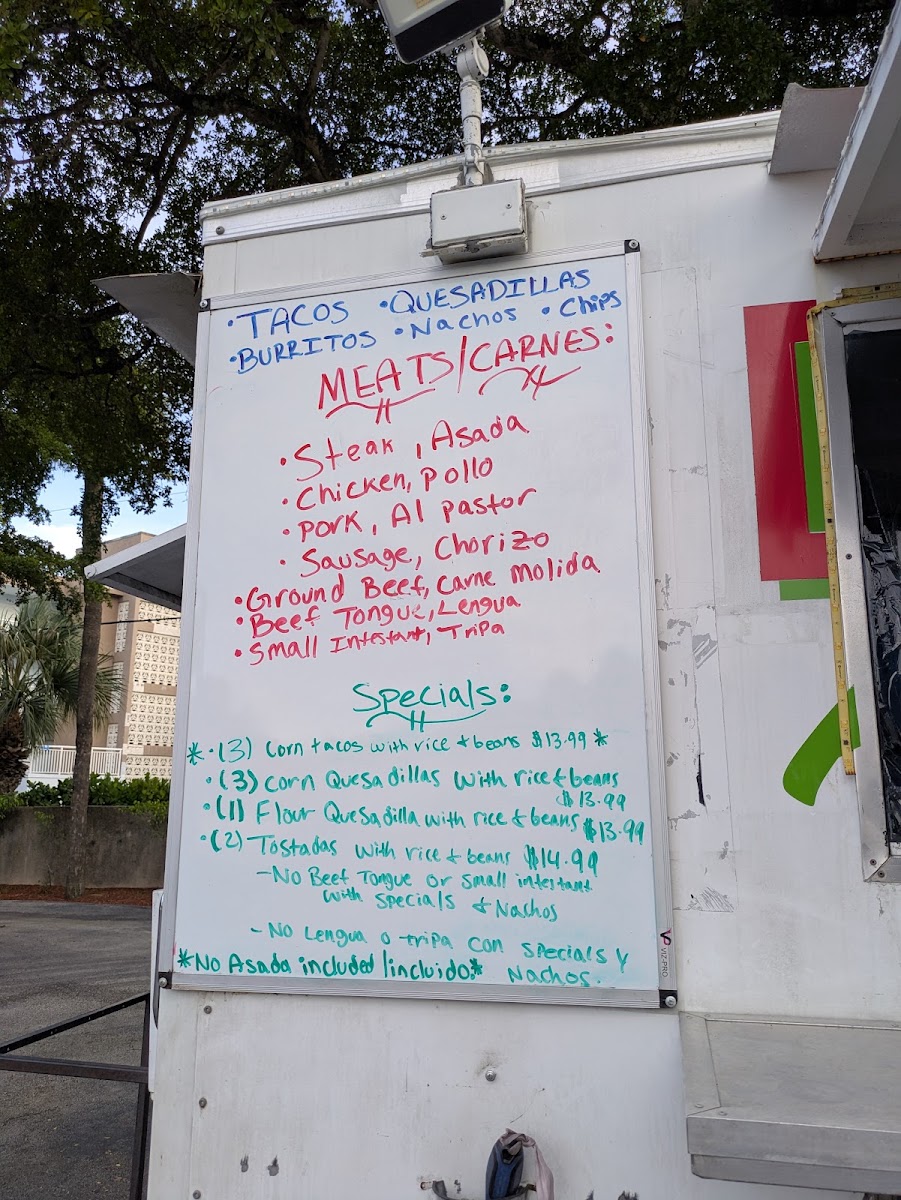 • TACOS • QUESADILLAS
• BURRITOS • NACHOS • Chips
MEATS/CARNES:
• Steak, Asada
• Chicken, Pollo
• Pork, Al pastor
• Sausage, Chorizo
• Ground Beef, Carne Molida
• Beef Tongue, Lengua
• Small Intestant, Tripa
Specials:
* • (3) Corn tacos with rice & beans $13.99 *
• (3) Corn Quesadillas with rice & beans
$13.99
• (1) Flour Quesadilla with rice & beans $13.99
• (2) Tostadas with rice & beans $14.99
- No Beef Tongue or small intestant
with specials & Nachos
- No Lengua o tripa con specials y
Nachos.
*No Asada included/incluido*
VIZ-PRO